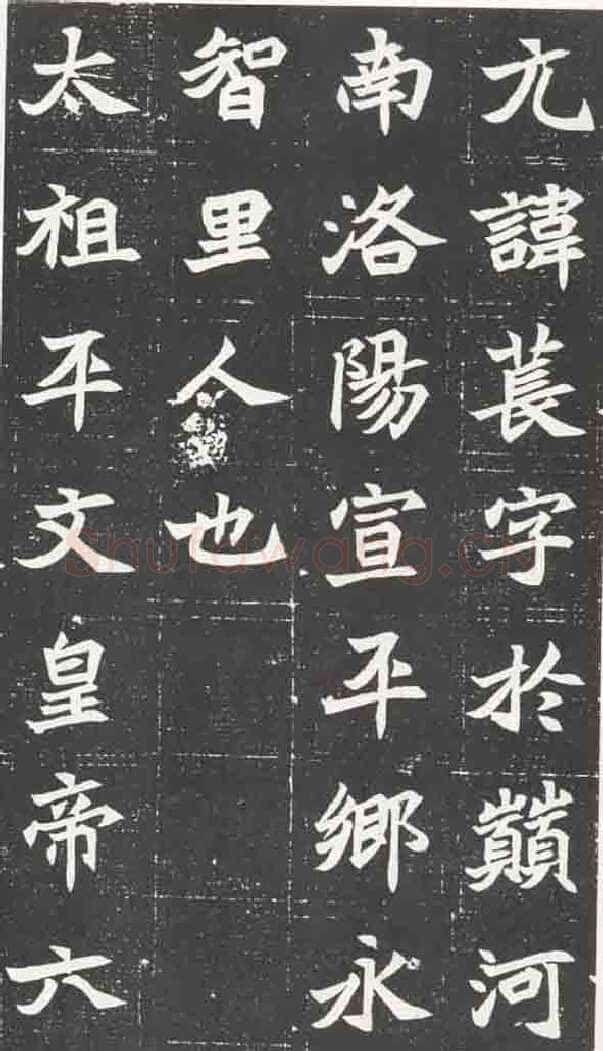 元諱萇字於巔河
南洛陽宣平鄉永
智里人也
太祖平文皇帝六
Shufawang.cn